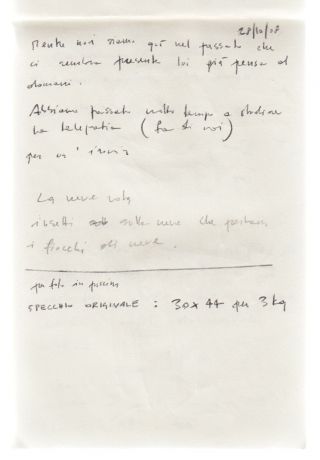 28/10/08
Mentre noi siamo già nel passato che
ci sembra presente lui già pensa al
domani.
Abbiamo passato molto tempo a studiare
la telepatia (fra di noi)
per
La neve vola
insetti sulla neve che portano
i fiocchi di neve.
per foto in piscina
SPECCHIO ORIGINALE : 30x44 per 3 kg